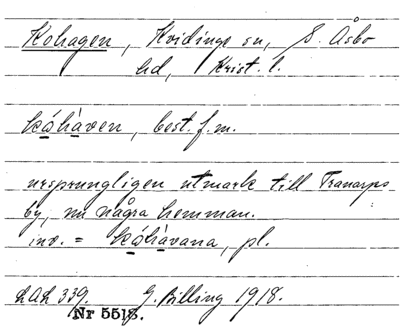 Kohagen, Kvidinge sn, S. Åsbo
hd, Krist. l.
kóhàven, best. f. m.
ursprungligen utmark till Tranarps
by, nu några hemman.
inv. = kóhàvana, pl.
LAL 339. G. Billing 1918.
Nr 5518.